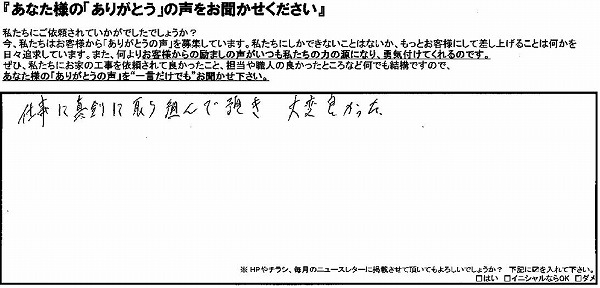 『あなた様の「ありがとう」の声をお聞かせください』
私たちにご依頼されていかがでしたでしょうか?
今、私たちはお客様から「ありがとうの声」を募集しています。私たちにしかできないことはないか、もっとお客様にして差し上げることは何かを
日々追求しています。また、何よりお客様からの励ましの声がいつも私たちの力の源になり、勇気付けてくれるのです。
ぜひ、私たちにお家の工事を依頼されて良かったこと、担当や職人の良かったところなど何でも結構ですので、
あなた様の「ありがとうの声」を“一言だけでも”お聞かせ下さい。
仕事に真剣に取り組んで頂き 大変良かった
※HPやチラシ、毎月のニュースレターに掲載させて頂いてもよろしいでしょうか? 下記に☑を入れて下さい。
□はい □イニシャルならOK □ダメ